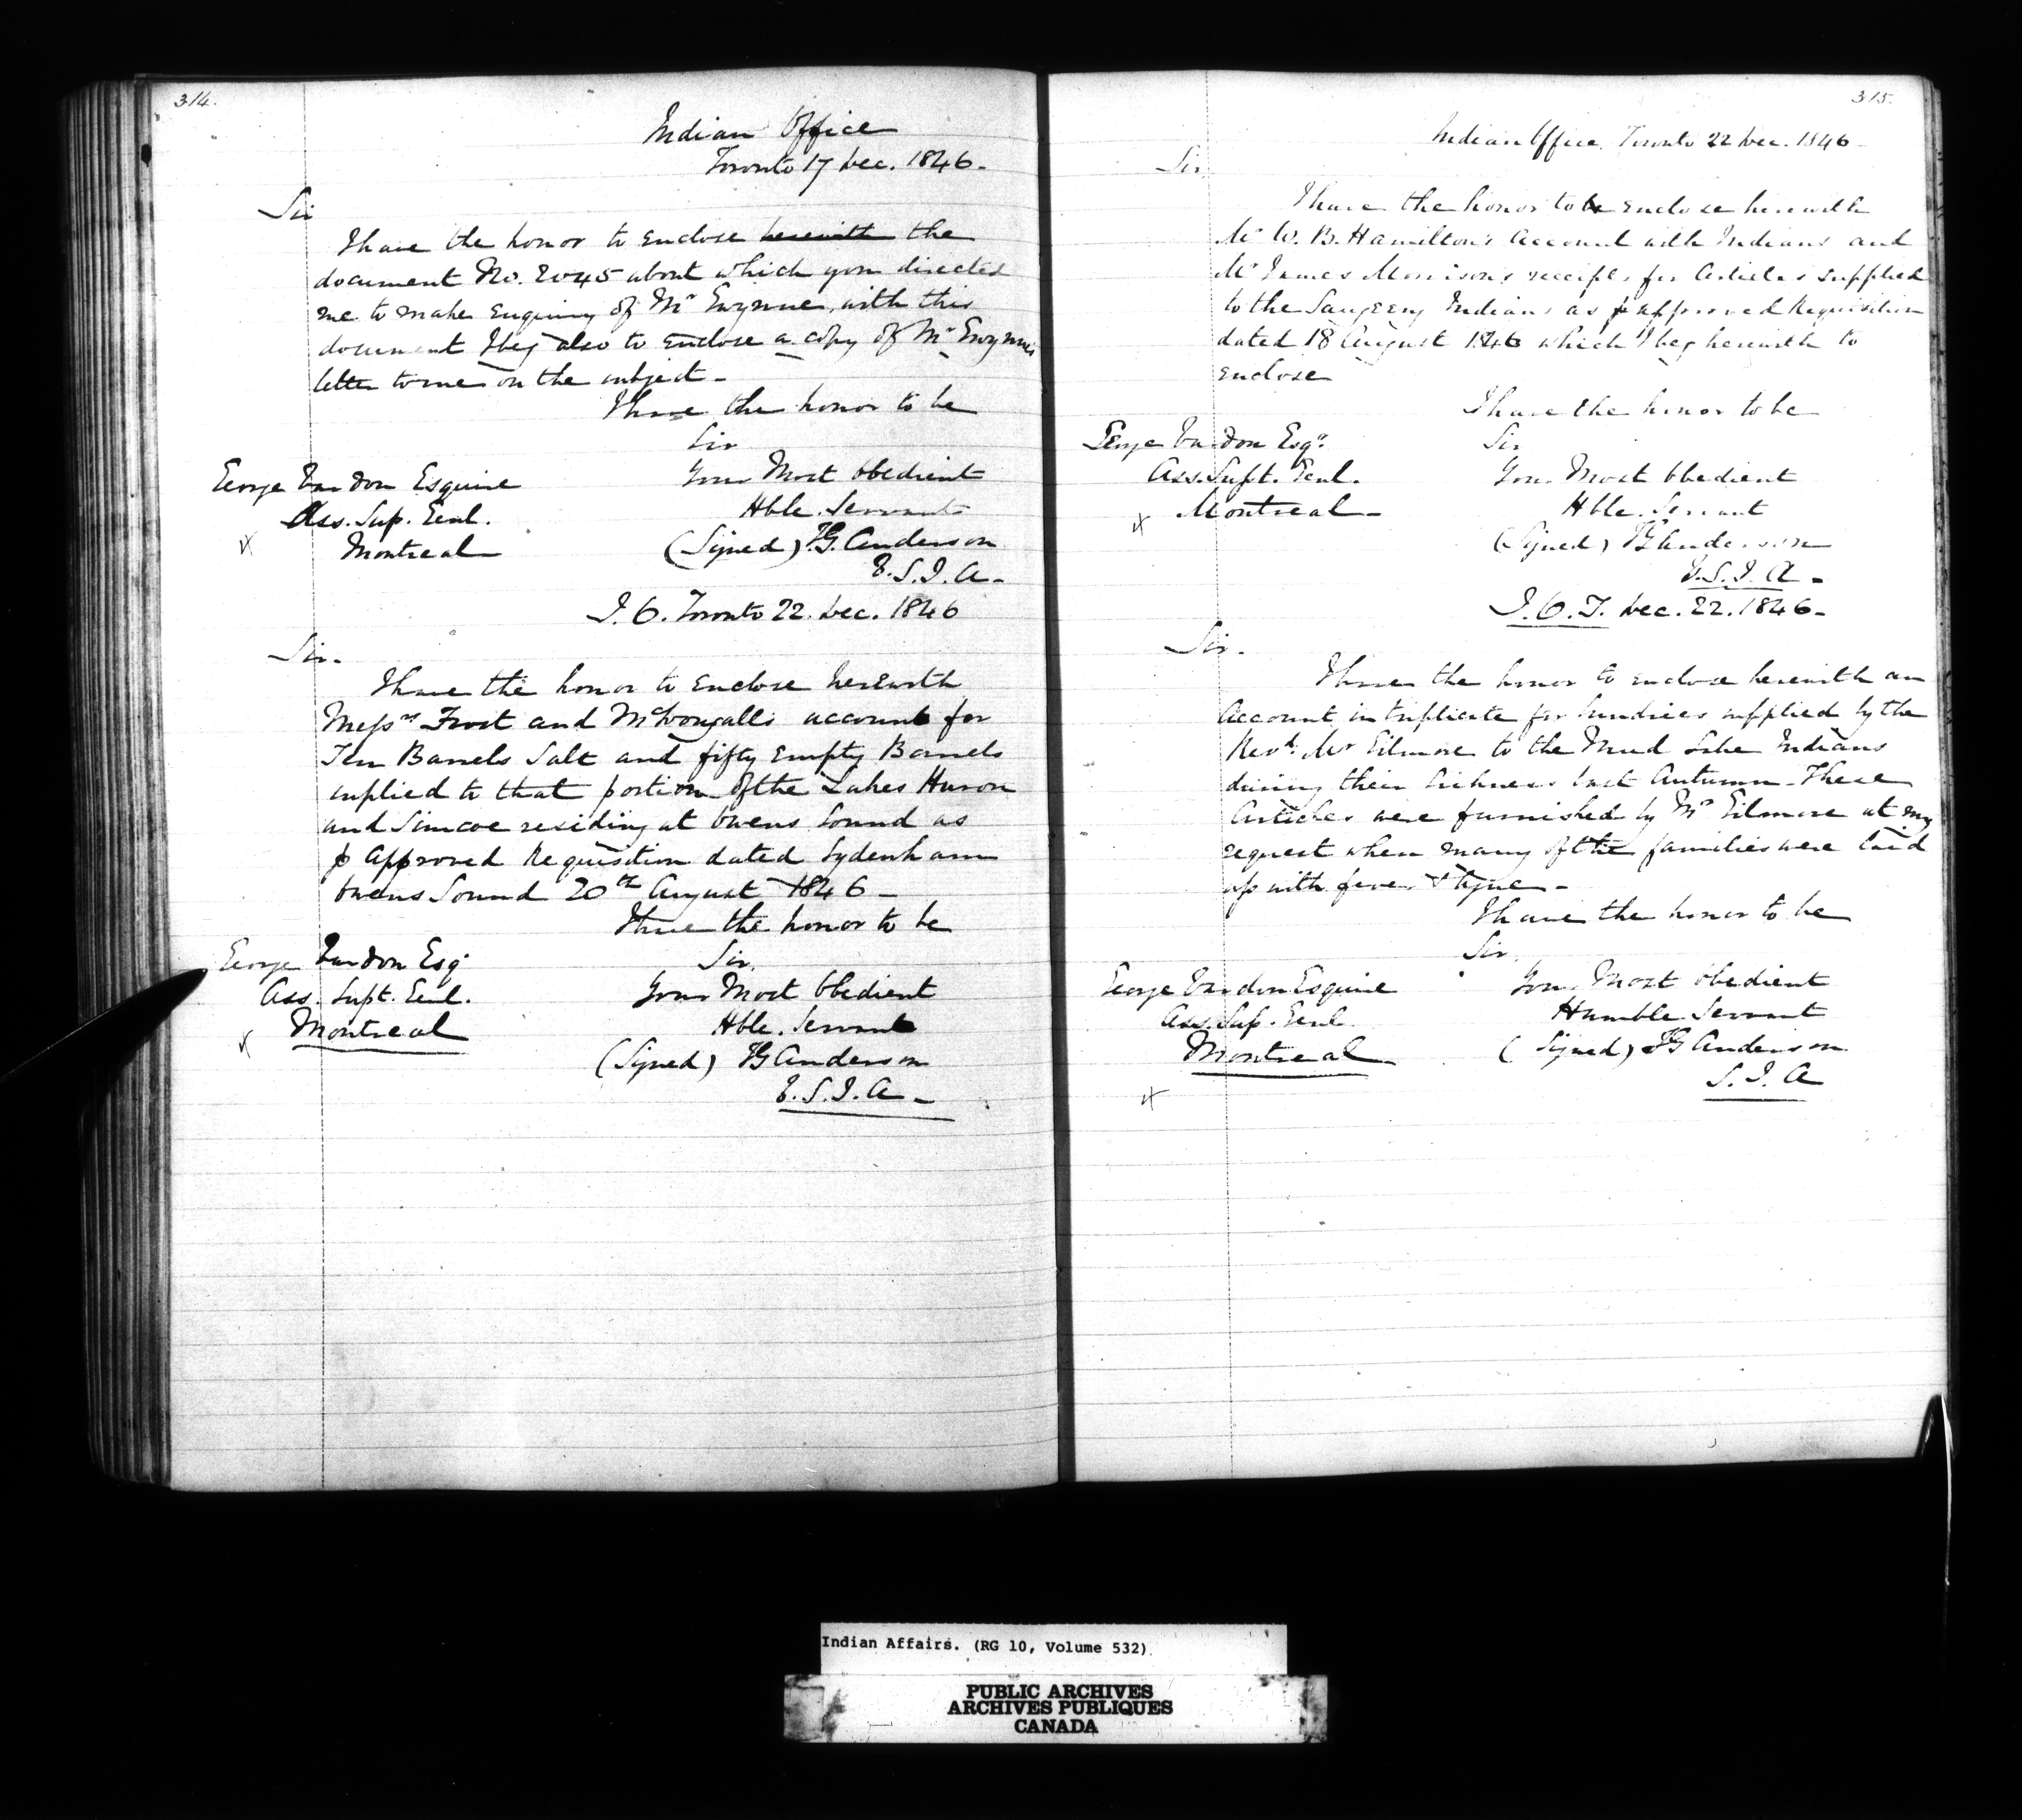 314.
Indian Office
Toronto 17 Dec. 1846-
Sir
I have the honor to enclose herewith the
document No. 2045 about which you directed
me to make enquiry of Mr Gwynne, with this
document I beg also to enclose a copy of Mr Gwynnes
letter to me on the subject-
I have the honor to be
Sir
Your Most Obedient
Hble. Servant
George Vardon Esquire
Ass. Sup. Genl.
Montreal
(Signed) TG. Anderson
V.S.I.A-
I.O. Toronto 22. Dec. 1846
Sir-
I have the honor to enclose herewith
Messrs Frost and McDougalls account for
Ten Barrels Salt and fifty empty Barrels
suplied to that portion of the Lakes Huron
and Simcoe residing at Owens Sound as
p Approved Requisition dated Sydenham
Owens Sound 20th August 1846-
I have the honor to be
Sir,
Your Most Obedient
Hble. Servant
George Vardon Esq.
Ass. Supt. Genl.
Montreal
(Signed) TG Anderson
V.S.I.A-
315.
Indian Office, Toronto 22 Dec. 1846-
Sir
I have the honor to be enclose herewith
Mr W. B. Hamilton's Account with Indians and
Mr James Morrison's receipt for Articles supplied
to the Saugeeng Indians as p approved Requisition
dated 18 August 1846 which I beg herewith to
enclose
I have the honor to be
Sir
Your Most Obedient
Hble. Servant
George Vardon Esqr.
Ass. Supt. Genl.
Montreal-
(Signed) TG Anderson
V.S.I.A-
I.O.T. Dec. 22. 1846-
Sir-
I have the honor to enclose herewith an
Account in triplicate for Sundries supplied by the
Revd. Mr Gilmore to the Mud Lake Indians
during their Sickness last Autumn-These
Articles were furnished by Mr Gilmore at my
request when many of the families were laid
up with fever & Ague-
I have the honor to be
Sir,
Your Most Obedient
Humble Servant
George Vardon Esquire
Ass. Sup. Genl.
Montreal
(Signed) TG Anderson
S.I.A
Indian Affairs. (RG 10, Volume 532)
PUBLIC ARCHIVES
ARCHIVES PUBLIQUES
CANADA